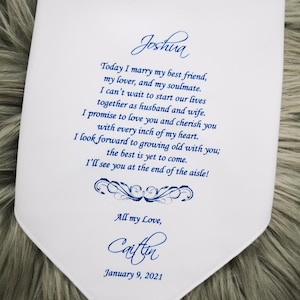 Joshua
Today I marry my best friend,
my lover, and my soulmate.
I can't wait to start our lives
together as husband and wife.
I promise to love you and cherish you
with every inch of my heart.
I look forward to growing old with you;
the best is yet to come.
I'll see you at the end of the aisle!
All my Love,
Caitlin
January 9, 2021